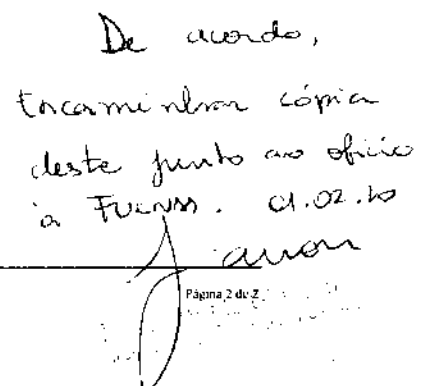 De acordo,
Encaminhar cópia
deste junto ao ofício
à 01.02.10
Página 2 de 2